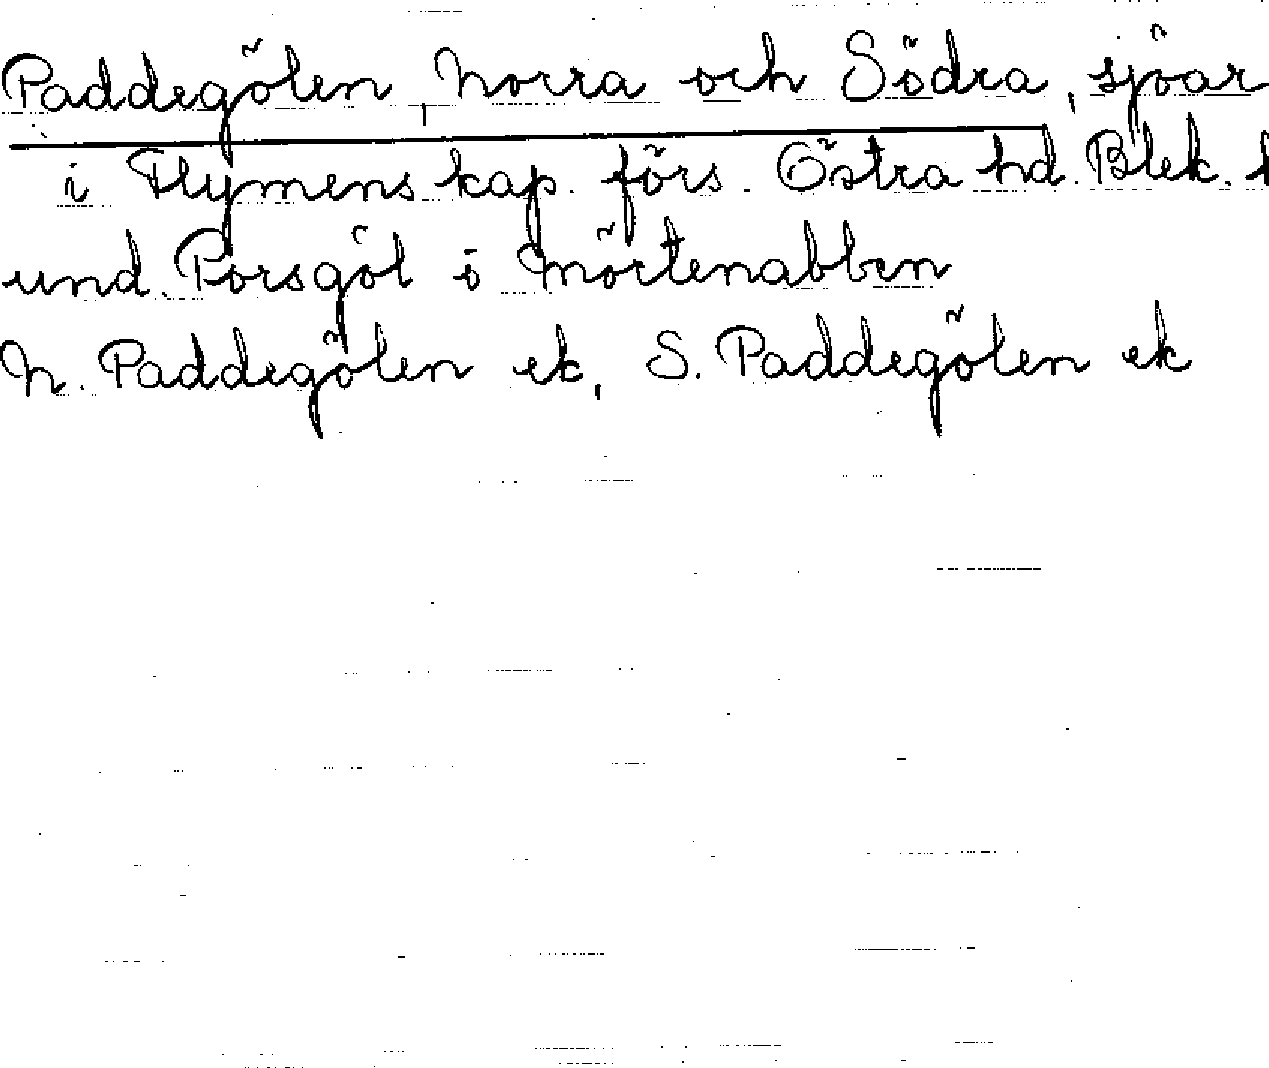 Paddegölen, Norra och Södra, sjöar
i Flymens kap. förs. Östra hd. Blek.
und. Porsgöl i Mörtenabben
N. Paddegölen ek, S. Paddegölen ek